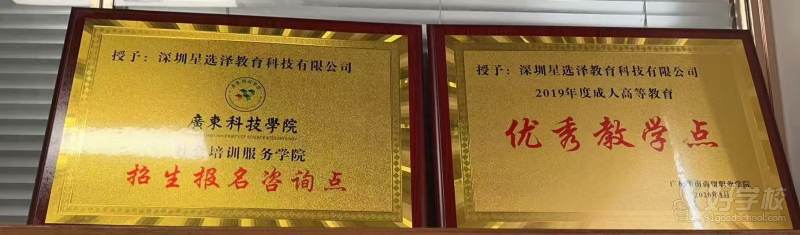 授予：深圳星选泽教育科技有限公司
廣東科技學院
培训服务学院
招生报名咨询点
授予：深圳星选泽教育科技有限公司
2019年度成人高等教育
优秀教学点
职业学院
好学校
91goodschool.com